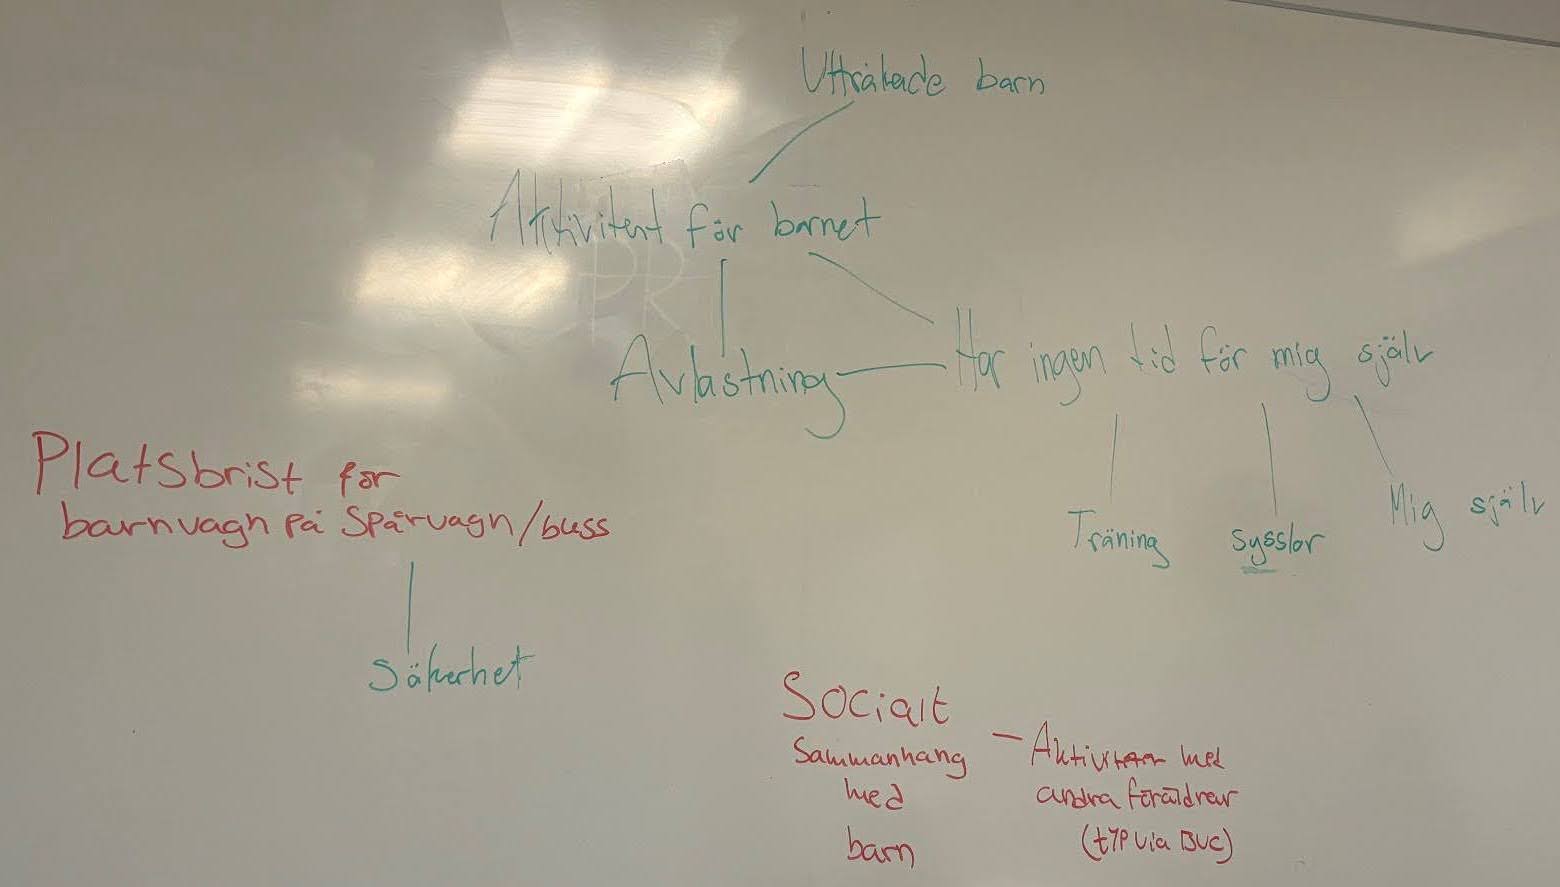 Uttråkade barn
Aktivitent för barnet
Avlastning
Har ingen tid för mig själv
Träning
Sysslor
Mig själv
Platsbrist för
barnvagn på Spårvagn/buss
Säkerhet
Socialt
Sammanhang
med
barn
- Aktiviteter med
andra föräldrar
(typ via BVC)